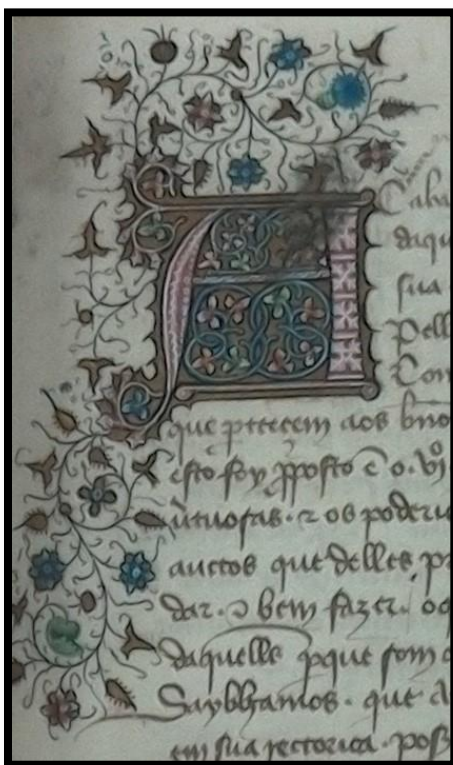 A
Caba
daqu
sua
Pell
Con
que pertecem aos bno
esto foy pposto e o. vj
utuosas. z os poderi
auctos que delles pr
dar. z bem fazer. oq
daquelle pque som
Saybhamos. que a
em sua rectorica. poss